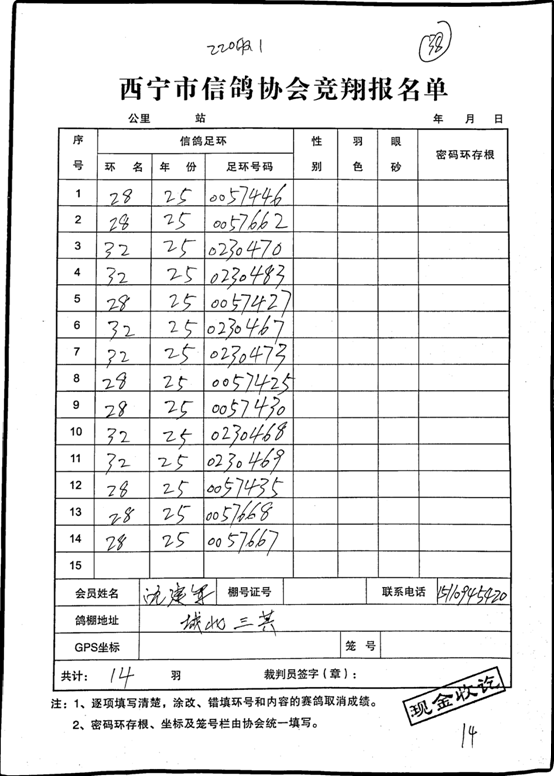 220级1
38
西宁市信鸽协会竞翔报名单
公里 站 年 月 日
序号 信鸽足环 性别 羽色 眼砂 密码环存根
环名 年份 足环号码
1 28 25 0057446
2 28 25 0057662
3 32 25 0230470
4 32 25 0230483
5 28 25 0057427
6 32 25 0230467
7 32 25 0230473
8 28 25 0057425
9 28 25 0057430
10 32 25 0230468
11 32 25 0230469
12 28 25 0057435
13 28 25 0057668
14 28 25 0057667
15
会员姓名 沈建军 棚号证号 联系电话 15110945420
鸽棚地址 城北三其
GPS坐标 笼号
共计: 14 羽 裁判员签字(章):
注:1、逐项填写清楚,涂改、错填环号和内容的赛鸽取消成绩。
2、密码环存根、坐标及笼号栏由协会统一填写。
现金收讫
14